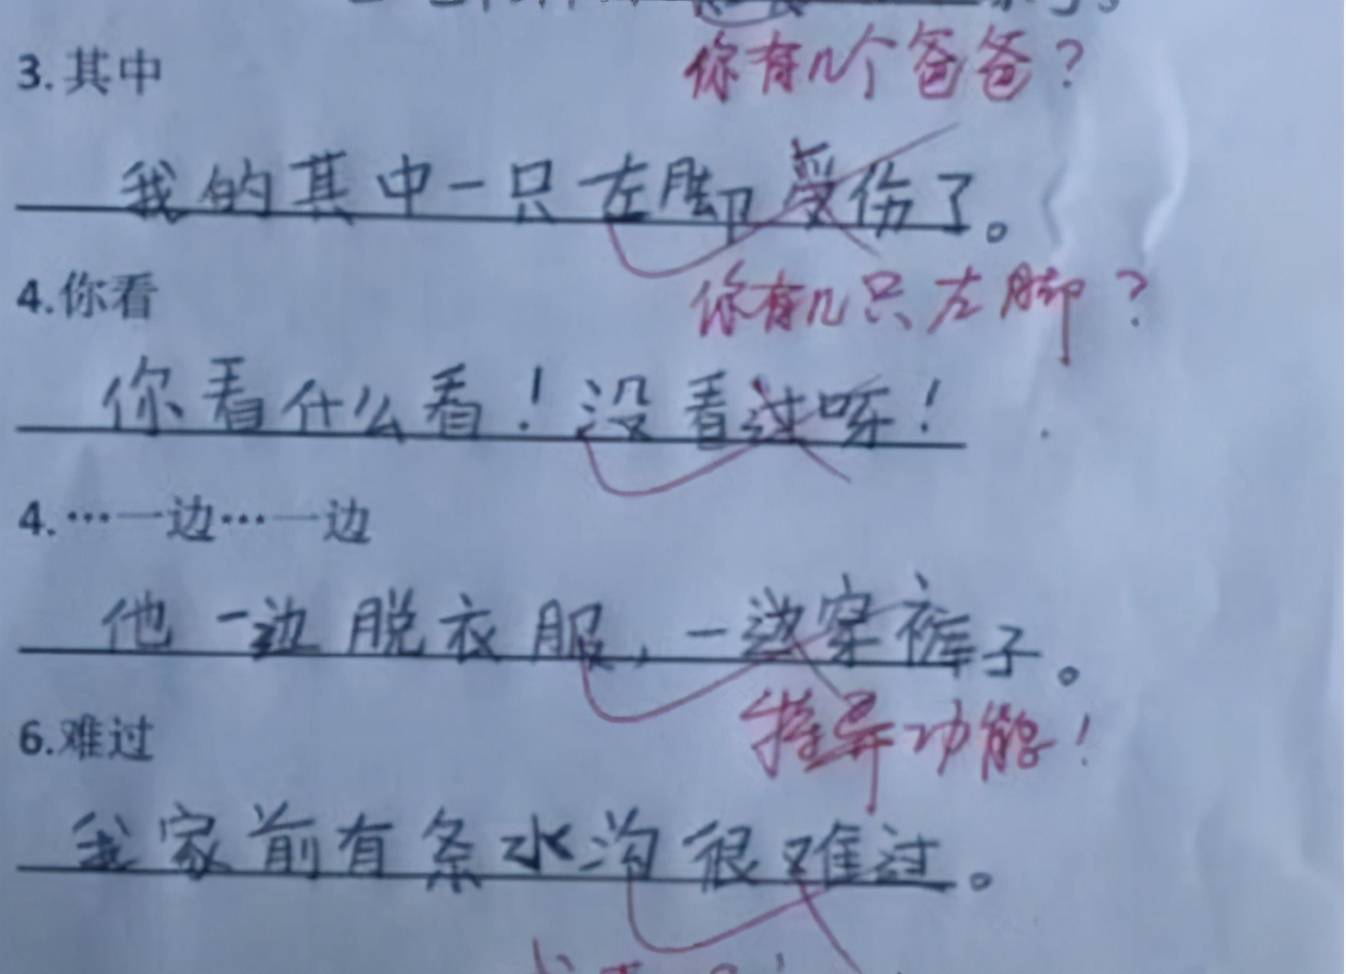 你有几个爸爸？
3.其中
我的其中一只左脚受伤了。
4.你看
你有几只左脚？
你看什么看！没看过呀！
4.…一边…一边
他一边脱衣服，一边穿裤子。
6.难过
特异功能！
我家前有条水沟很难过。